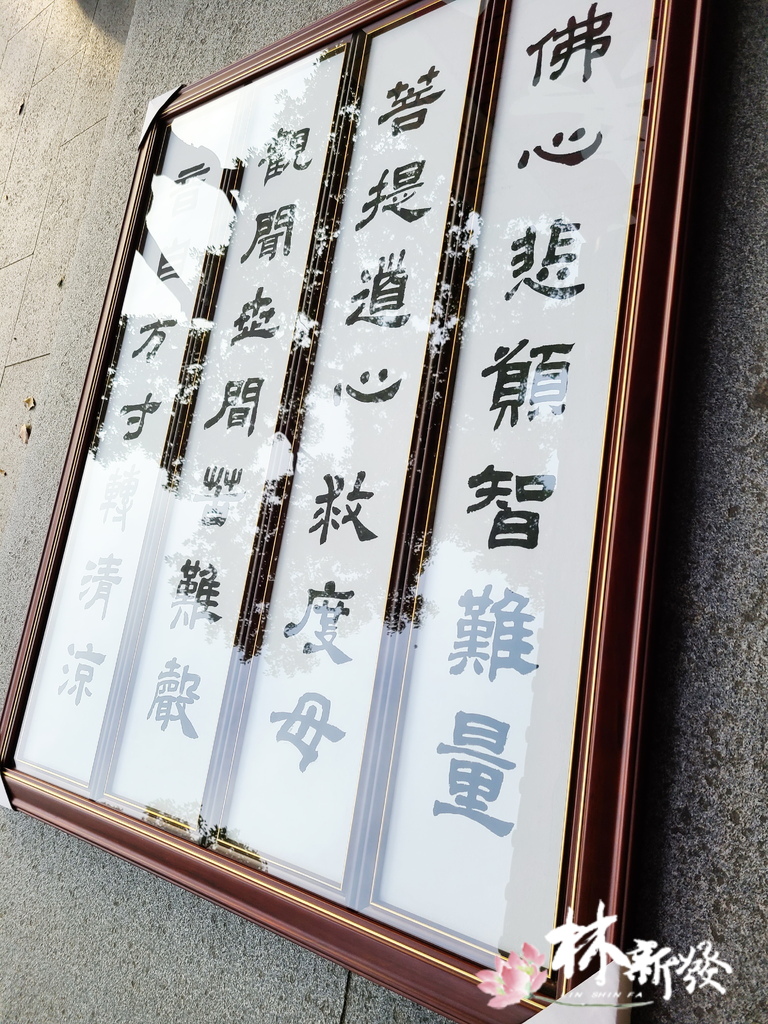 佛心悲願智難量
菩提道心救度母
觀聞世間苦難聲
方寸轉清涼
林新發
LIN SHIN FA